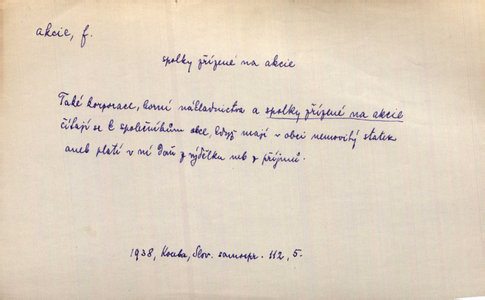 akcie, f.
spolky zřízené na akcie
Také korporace, horní nákladnictva a spolky zřízené na akcie
čítají se k společníkům obce, když mají v obci nemovitý statek
aneb platí v ní daň z výdělku neb z příjmů.
1938, Kouba, Slov. samospr. 112, 5.